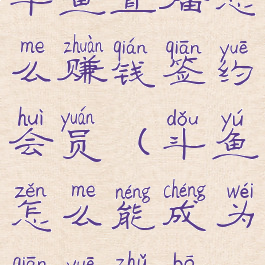 斗鱼直播怎
me zhuàn qián qiān yuē
么赚钱签约
huì yuán dǒu yú
会员（斗鱼
zěn me néng chéng wéi
怎么能成为
qiān yuē zhǔ bō